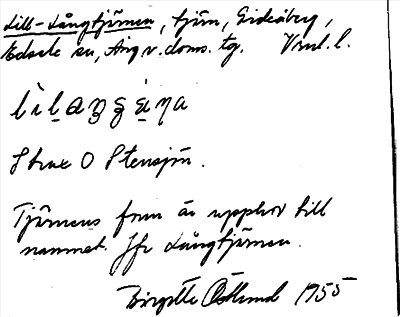 Lill-Långtjärnen, tjärn, Gideåberg,
Edsele sn, Ång v. doms. tg. Vnl. l.
Strax O Stensjön.
Tjärnens form är upphov till
namnet. Jfr Långtjärnen.
Birgitta Östlund 1955